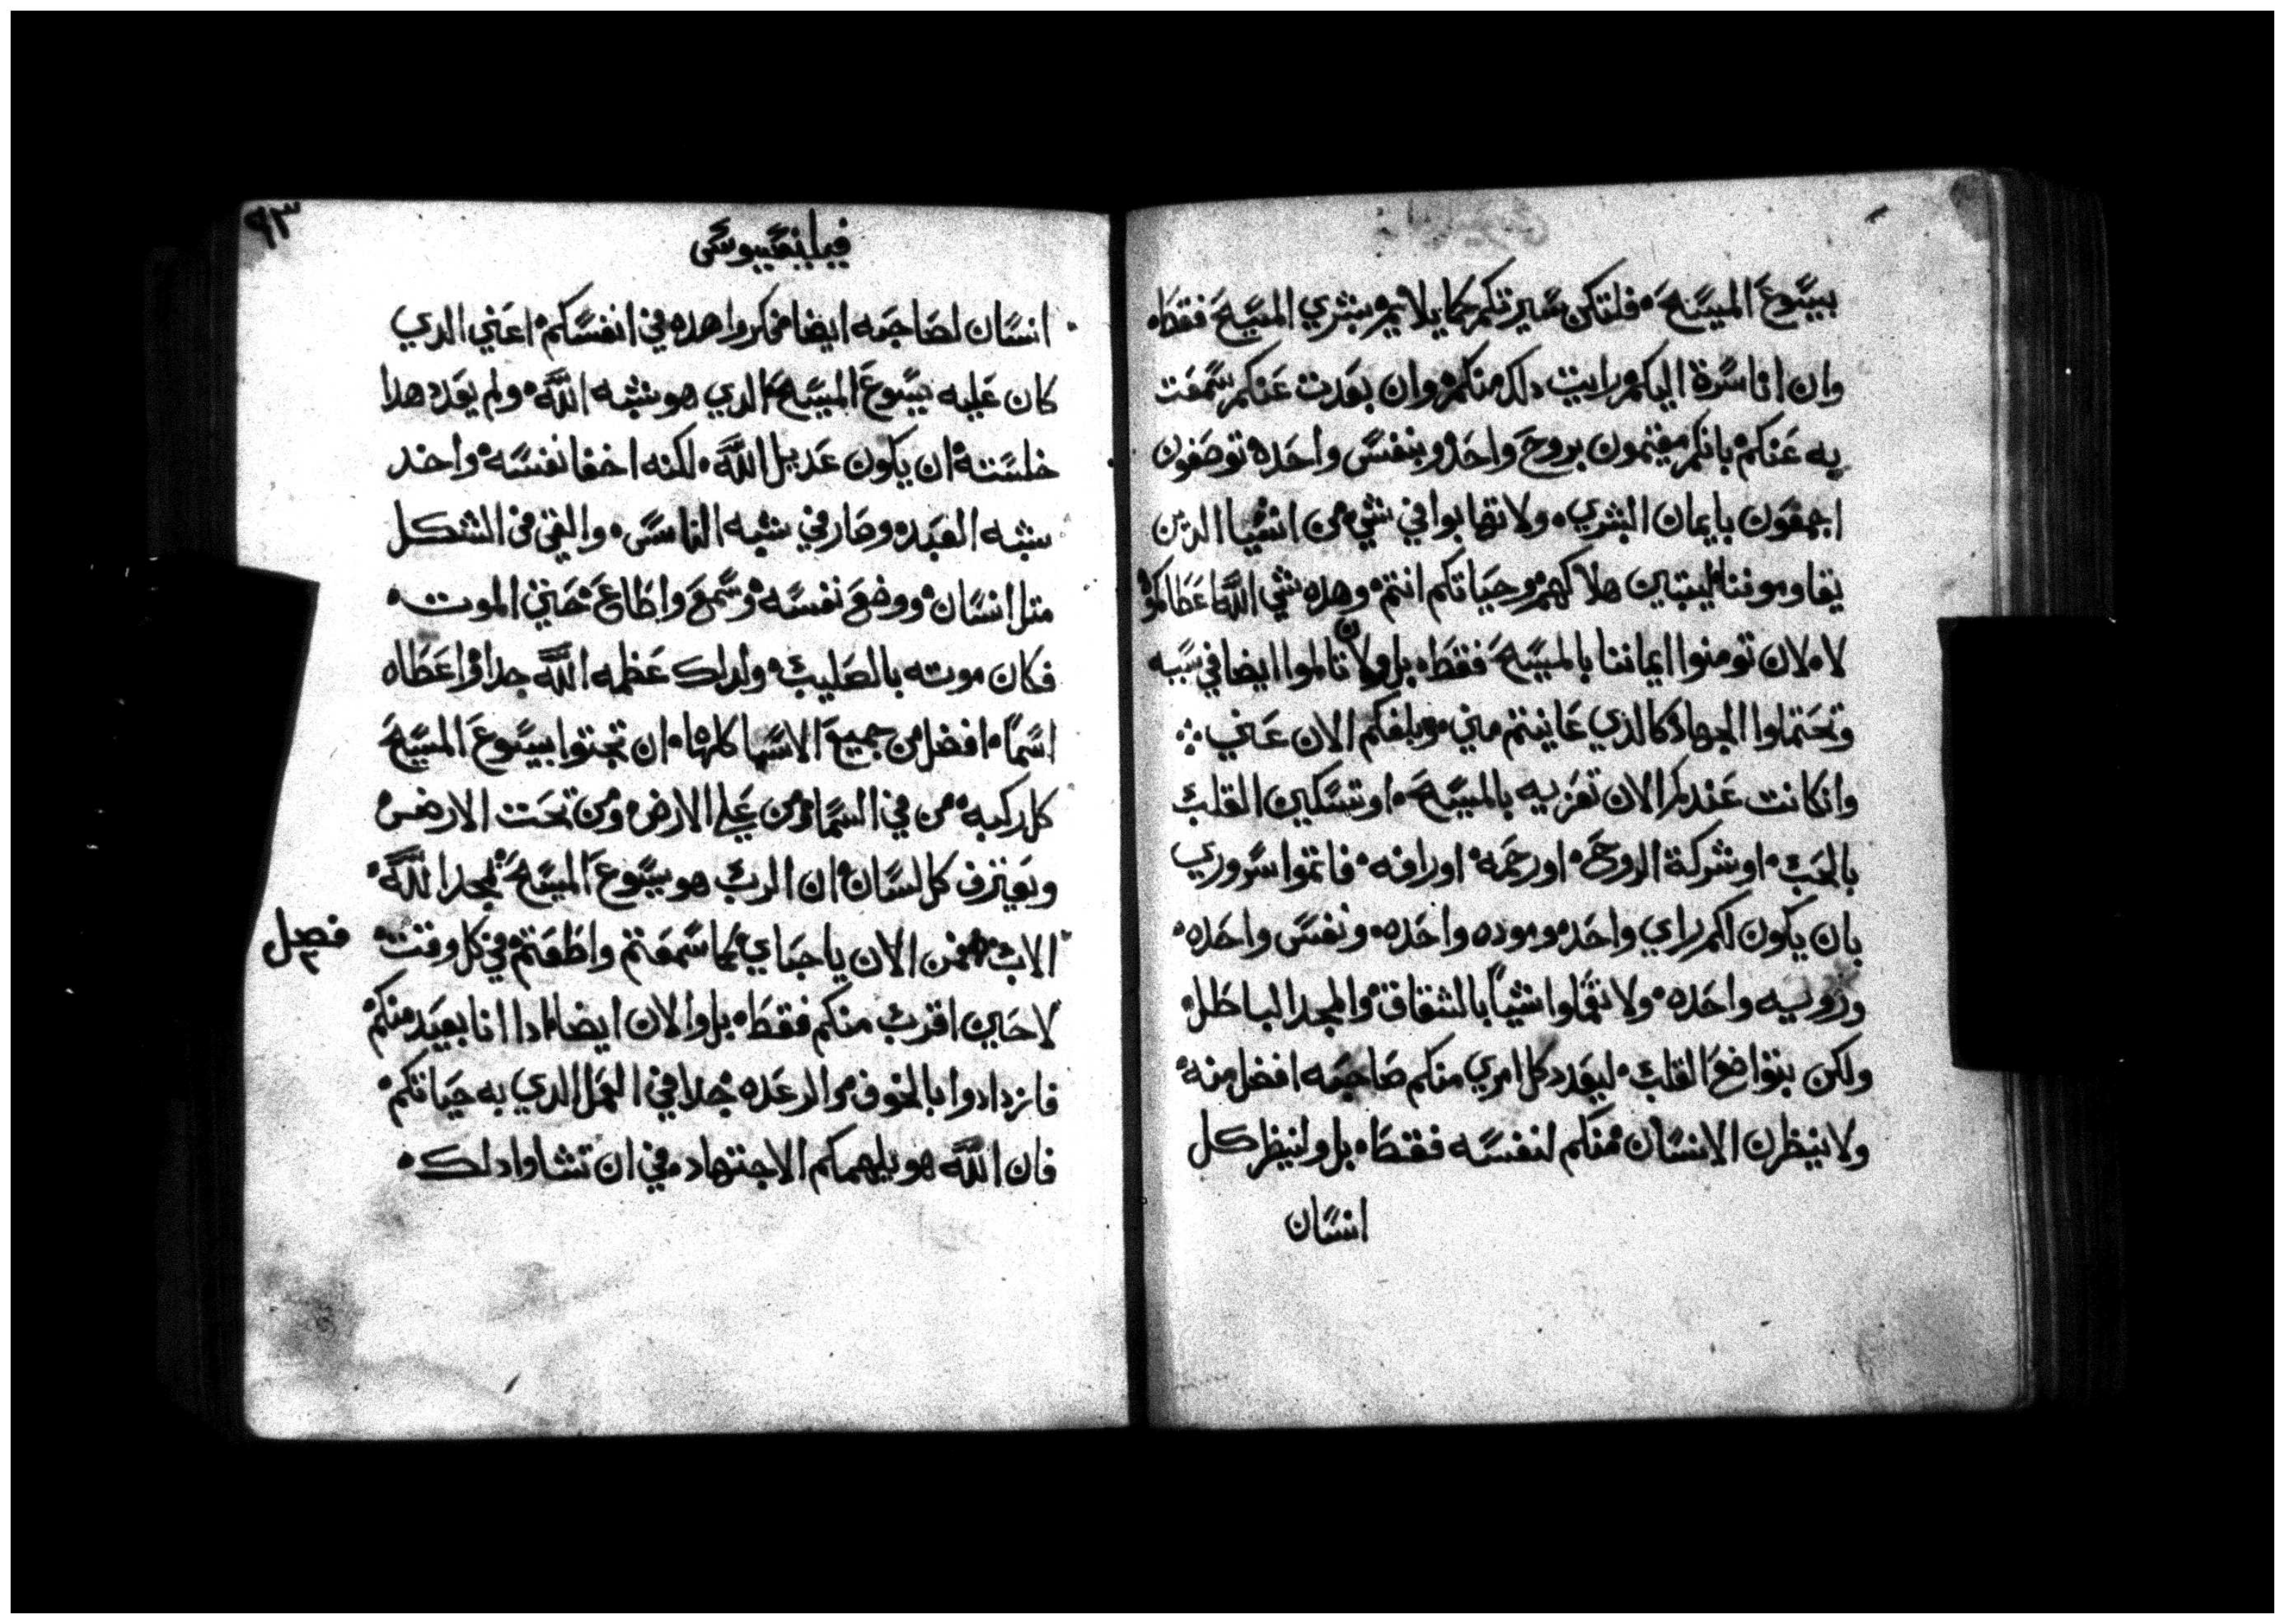 بيسوع المسيح٠ فلتكن سيرتكم كما يلايم بشري المسيح فقط٠
وان انا سرة اليكم رايت دلك منكم٠ وان بعدت عنكم سمعت
به عنكم٠ بانكم مقيمون بروح واحد٠ وبنفس واحده توصفون
اجمعون بايمان البشري٠ ولا تهابوا في شي من اشيا الدين
يقاوموننا٠ ليتبين هلاكهم٠ وحياتكم انتم٠ وهده شي الله اعطاكموه
لا٠ لان تومنوا ايماننا بالمسيح فقط٠ بل ولان تالموا ايضا في سببه
وتحتملوا الجهاد كالذي عاينتم مني٠ وبلغكم الان عني ⁘
وانكانت عندكم الان تعزيه بالمسيح٠ او تسكين القلب
بالحب٠ او شركة الروح٠ او رحمه٠ او رافه٠ فاتموا سروري
بان يكون لكم راي واحد٠ وموده واحده٠ ونفس واحده٠
ورويه واحده٠ ولا تعملوا شيا بالشقاق٠ والمجد الباطل٠
ولكن بتواضع القلب٠ ليعدد كل امري منكم صاحبه افضل منه٠
ولا ينظرن الانسان منكم لنفسه فقط٠ بل ولينظر كل
انسان
٩٣
فيلبنفسيوس
انسان لصاحبه ايضا٠ فكروا هده في انفسكم٠ اعني الدي
كان عليه يسوع المسيح٠ الدي هو شبه الله٠ ولم يعدد هدا
خلسته٠ ان يكون عديل الله٠ لكنه اخفا نفسه٠ واخد
شبه العبد٠ وصار في شبه الناس٠ والفي في الشكل
متل انسان٠ ووضع نفسه٠ وسمع واطاع٠ حتي الموت٠
فكان موته بالصليب٠ ولدلك عظمه الله جدا٠ واعطاه
اسما٠ افضل من جميع الاسما كلها٠ ان تجتوا بيسوع المسيح
كل ركبه٠ من في السما٠ ومن علي الارض٠ ومن تحت الارض٠
ويعترف كل لسان٠ ان الرب هو يسوع المسيح٠ لمجد الله٠
الاب٠ فمن الان يا حباي٠ كما سمعتم واطعتم٠ في كل وقت٠
فصل
لا حين اقرب منكم فقط٠ بل والان ايضا٠ ادا انا بعيد منكم٠
فازدادوا بالخوف٠ والرعده٠ جدا في العمل الدي به حياتكم٠
فان الله هو يلهمكم الاجتهاد٠ في ان تشاوا دلك٠